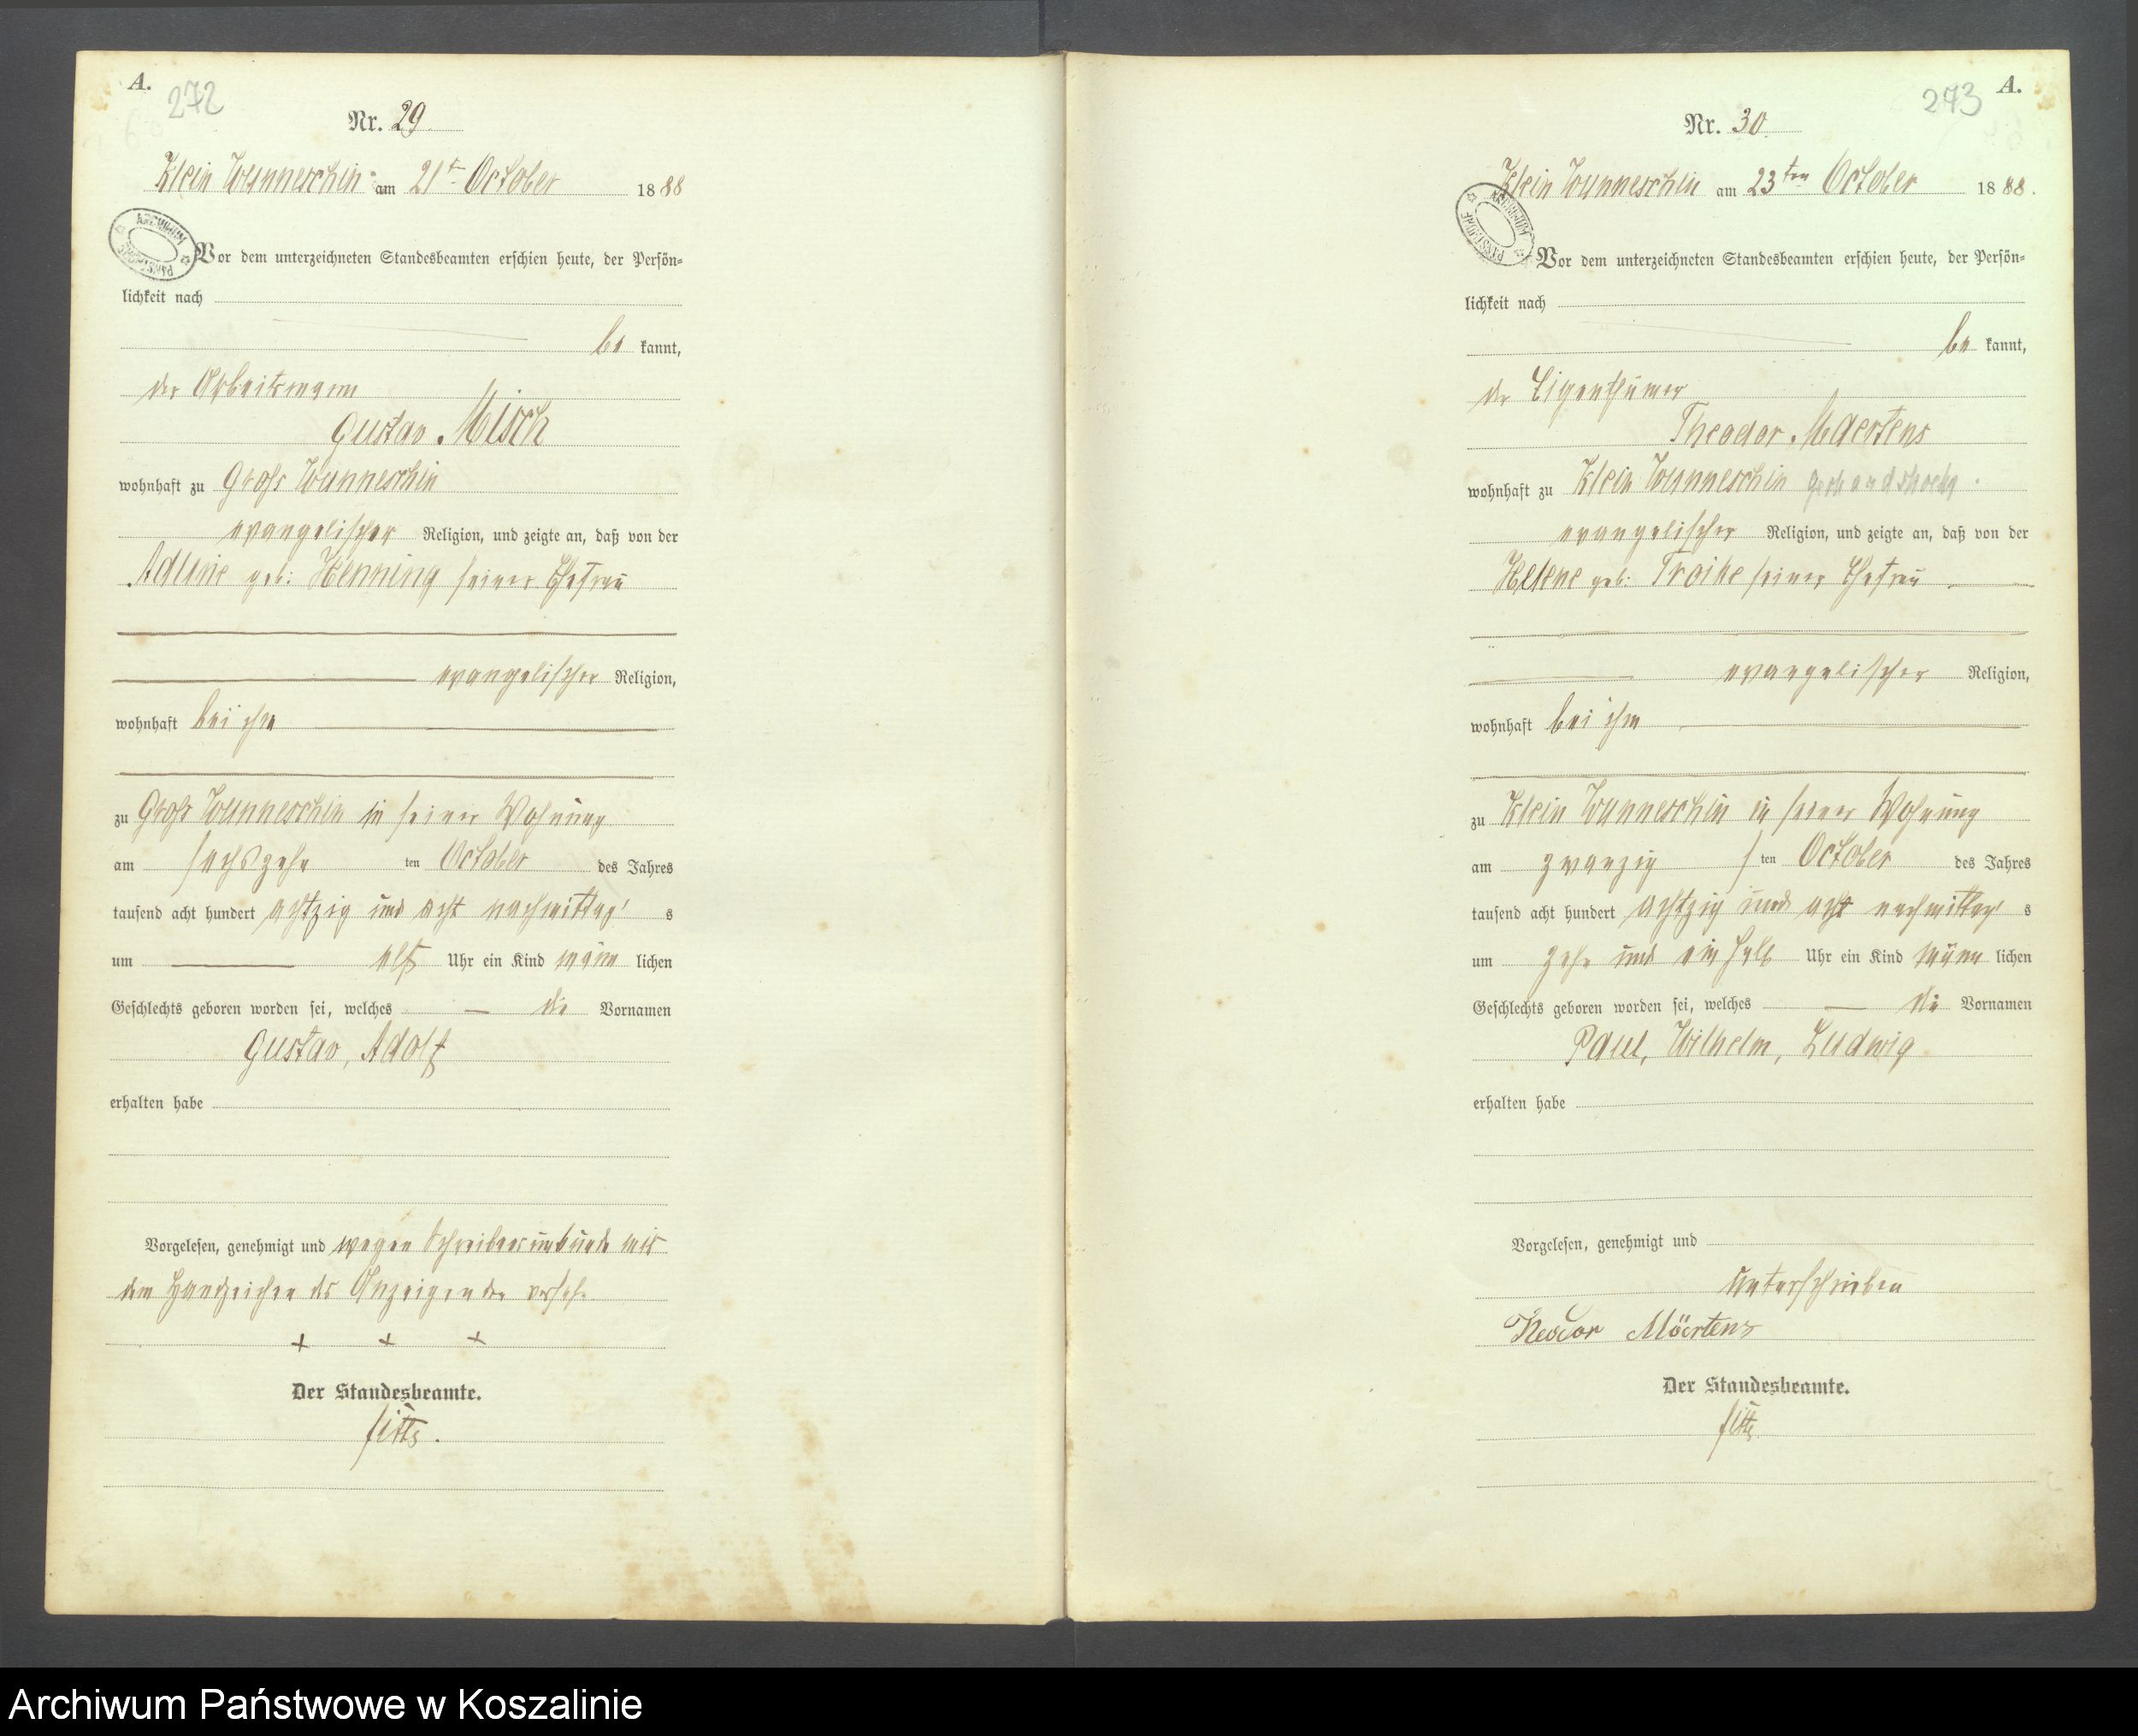 A.
272
Nr. 29.
Klein Wunneschin am 21t October 1888
Vor dem unterzeichneten Standesbeamten erschien heute, der Persön-
lichkeit nach
be kannt,
der Arbeitsmann
Gustav Misch
wohnhaft zu Groß Wunneschin
evangelischer Religion, und zeigte an, daß von der
geb: Henning seiner Ehefrau
evangelischer Religion,
wohnhaft bei ihm
zu Groß Wunneschin in seiner Wohnung
am sechszehn ten October des Jahres
tausend acht hundert achtzig und acht nachmittag's
um elf Uhr ein Kind männ lichen
Geschlechts geboren worden sei, welches die Vornamen
Gustav, Adolf
erhalten habe
Vorgelesen, genehmigt und wegen Schreibensunkunde mit
dem Handzeichen des Anzeigenden
+ + +
Der Standesbeamte.
A.
273
Nr. 30.
Klein Wunneschin am 23ten October 1888.
Vor dem unterzeichneten Standesbeamten erschien heute, der Persön-
lichkeit nach
be kannt,
der Eigenthümer
Theodor Maertens
wohnhaft zu Klein Wunneschin
evangelischer Religion, und zeigte an, daß von der
Helene geb: Troike seiner Ehefrau
evangelischer Religion,
wohnhaft bei ihm
zu Klein Wunneschin in seiner Wohnung
am zwanzig s ten October des Jahres
tausend acht hundert achtzig und acht nachmittag' s
um zehn und ein halb Uhr ein Kind männ lichen
Geschlechts geboren worden sei, welches die Vornamen
Paul, Wilhelm, Ludwig
erhalten habe
Vorgelesen, genehmigt und
unterschrieben
Theodor Märtens
Der Standesbeamte.
Archiwum Państwowe w Koszalinie